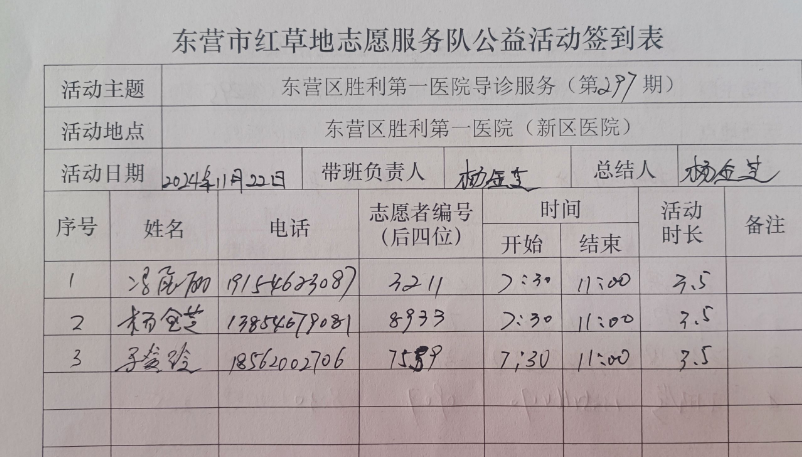 东营市红草地志愿服务队公益活动签到表
活动主题 东营区胜利第一医院导诊服务（第297期）
活动地点 东营区胜利第一医院（新区医院）
活动日期 2024年11月22日 带班负责人 杨金芝 总结人 杨金芝
序号 姓名 电话 志愿者编号（后四位） 时间 开始 结束 活动时长 备注
1 19154623087 3211 7:30 11:00 3.5
2 杨金芝 13854679081 8933 7:30 11:00 3.5
3 18562002706 7:30 11:00 3.5